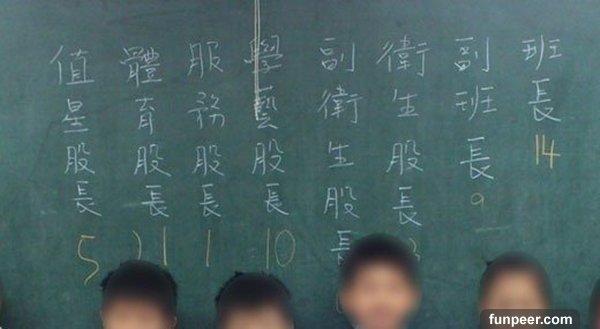 班長 14
副班長 9
衛生股長
副衛生股長
學藝股長 10
服務股長 1
體育股長 11
值星股長 5
funpeer.com